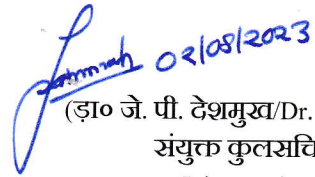 02/08/2023
(ड़ा० जे. पी. देशमुख/Dr.
संयुक्त कुलसचि